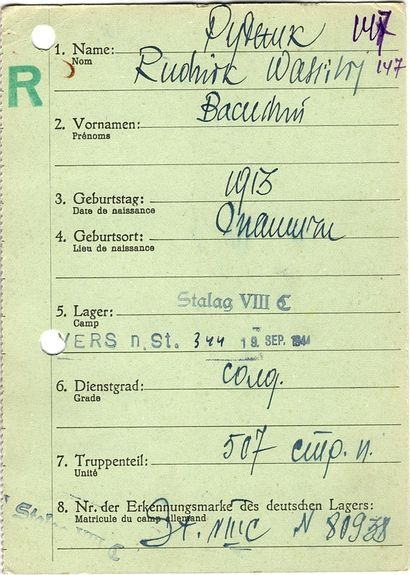 Рудник 147
1. Name: Rudnik Wassilij 147
Nom
R
Василий
2. Vornamen:
Prénoms
3. Geburtstag: 1913
Date de naissance
4. Geburtsort:
Lieu de naissance
5. Lager: Stalag VIII C
Camp
VERS n. St. 344 19. SEP. 1944
6. Dienstgrad: солд.
Grade
7. Truppenteil: 507 стр. п.
Unité
8. Nr. der Erkennungsmarke des deutschen Lagers:
Matricule du camp allemand
Stalag VIII C
St. VIIIC N 80938